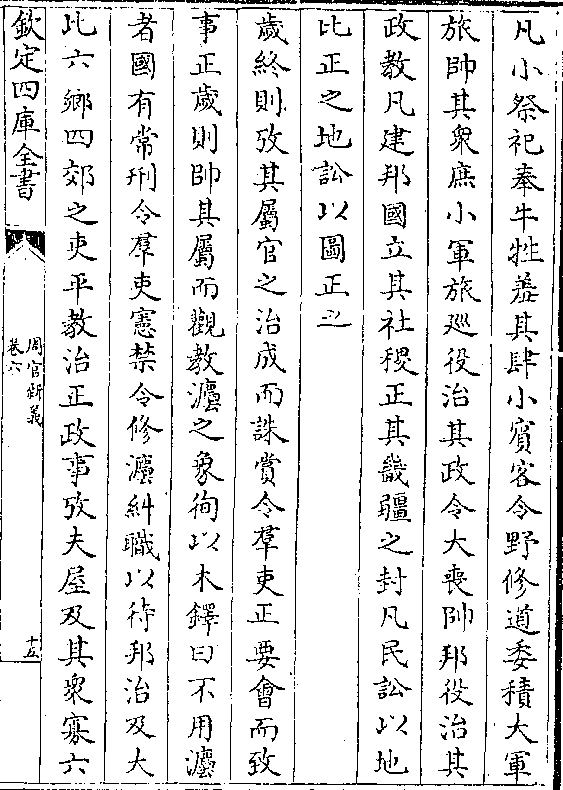 凡小祭祀奉牛牲羞其肆小賓客令野修道委積大軍
旅帥其衆庶小軍旅廵役治其政令大喪帥邦役治其
政教凡建邦國立其社稷正其畿疆之封凡民訟以地
比正之地訟以圖正之
歲終則攷其屬官之治成而誅賞令羣吏正要會而致
事正歲則帥其屬而觀教灋之象徇以木鐸曰不用灋
者國有常刑令羣吏憲禁令修灋糾職以待邦治及大
比六鄉四郊之吏平教治正政事攷夫屋及其衆寡六
欽定四庫全書
周官新義
卷六
十五